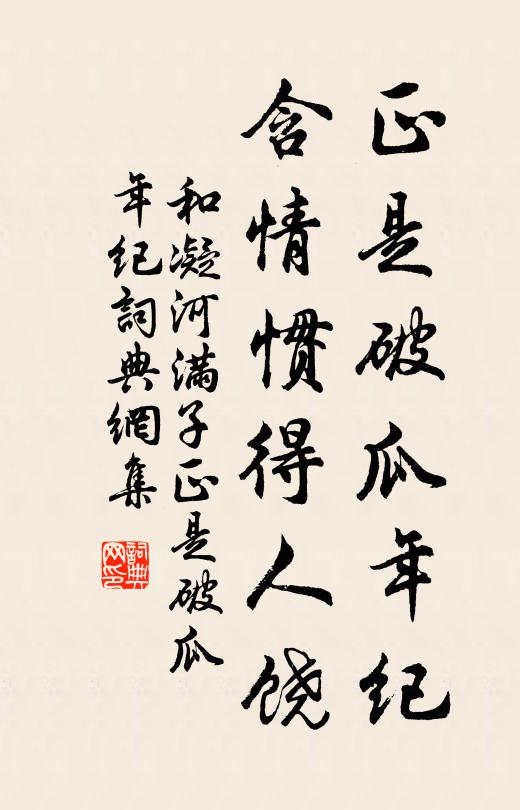 正是破瓜年纪
含情惯得人饶
和凝河满子正是破瓜
年纪詞典網集
詞典
网印